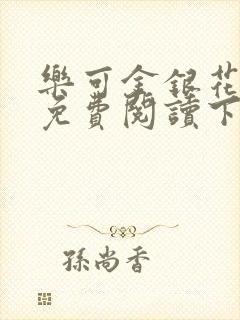 樂可金銀花
免費閱讀下
孫尚香